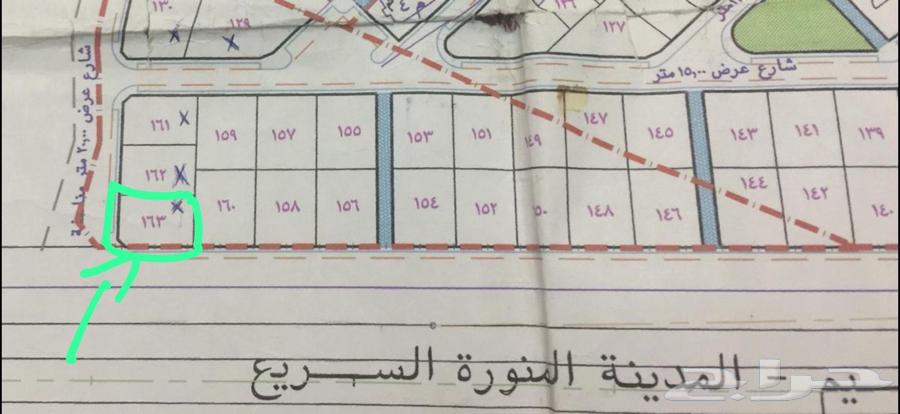 ١٣٠
١٢٩
م ٣٤
١٢٧
شارع عرض ١٥,٠٠ متر
شارع عرض ٢٠,٠٠ متر
١٦١
١٥٩
١٥٧
١٥٥
١٥٣
١٥١
١٤٩
١٤٧
١٤٥
١٤٣
١٤١
١٣٩
١٦٢
١٦٣
١٦٠
١٥٨
١٥٦
١٥٤
١٥٢
١٤٨
١٤٦
١٤٤
١٤٢
١٤٠
يم - المدينة المنورة السريع
حراج